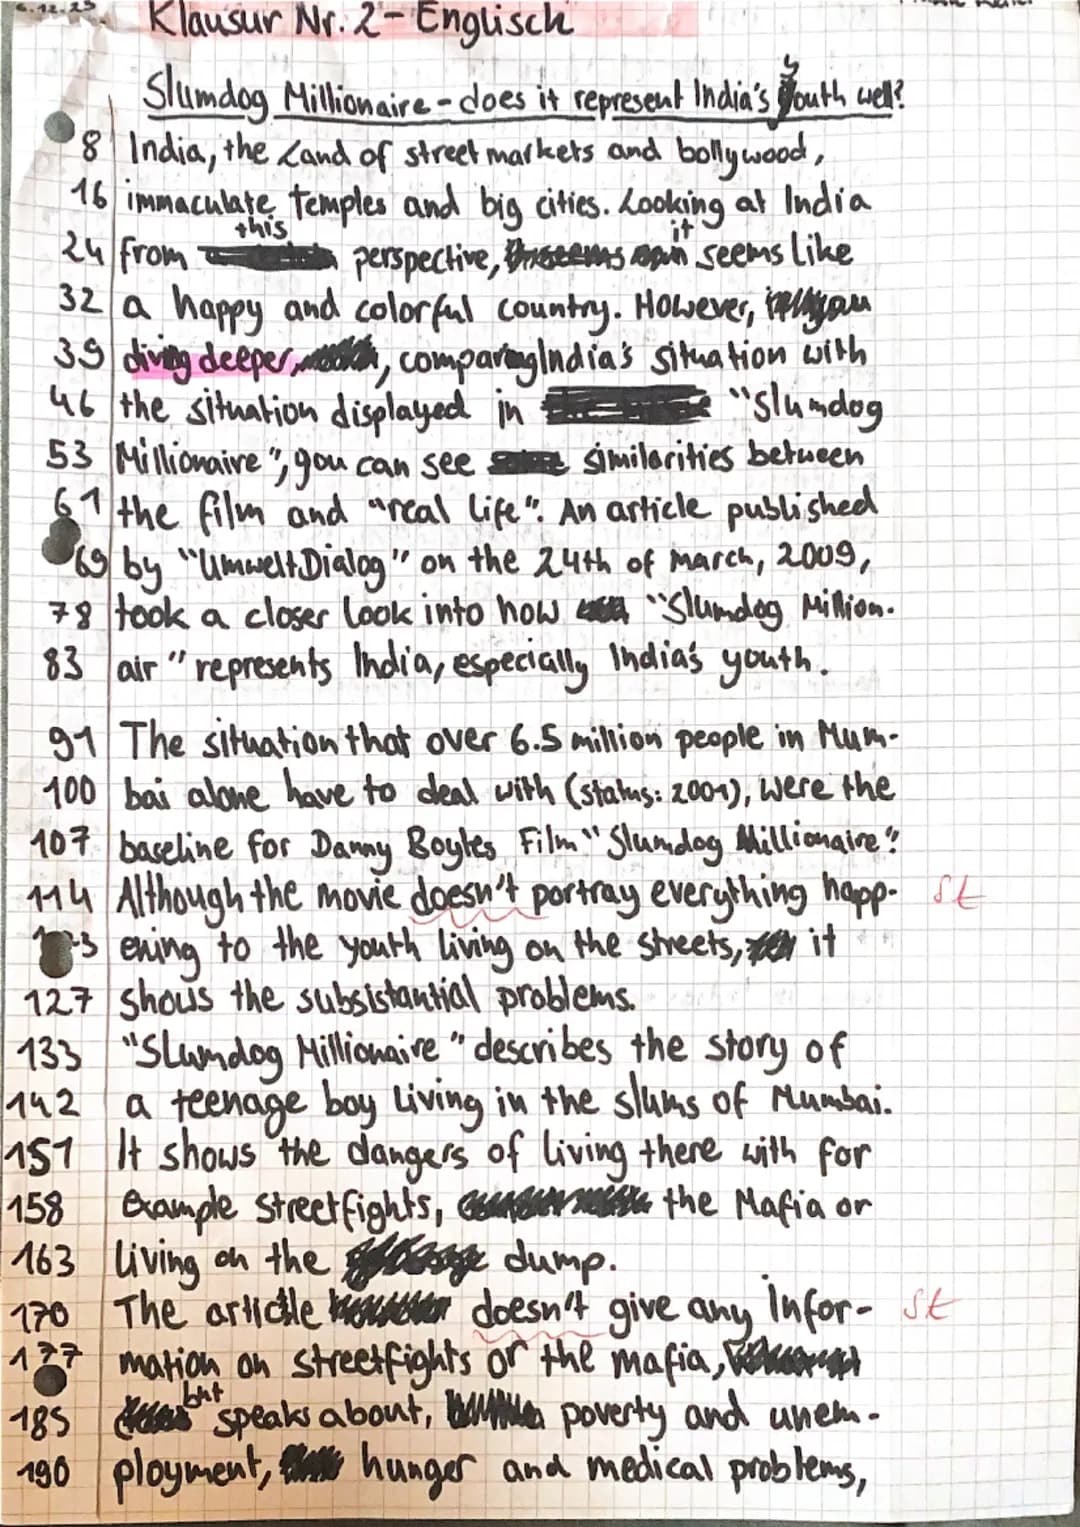 6.12.23
Klausur Nr. 2 - Englisch
Slumdog Millionaire - does it represent India's youth well?
8 India, the Land of street markets and bollywood,
16 immaculate temples and big cities. Looking at India
24 from this perspective, it seems like
32 a happy and colorful country. However,
39 diving deeper, comparing India's situation with
46 the situation displayed in "Slumdog
53 Millionaire", you can see similarities between
61 the film and "real life". An article published
69 by "UmweltDialog" on the 24th of march, 2009,
78 took a closer look into how "Slumdog Million-
83 air" represents India, especially India's youth.
91 The situation that over 6.5 million people in Mum-
100 bai alone have to deal with (status: 2001), were the
107 baseline for Danny Boyles Film "Slumdog Millionaire".
114 Although the movie doesn't portray everything happ- St
ening to the youth living on the streets, it
127 shows the subsistantial problems.
133 "Slumdog Millionaire" describes the story of
142 a teenage boy living in the slums of Mumbai.
151 It shows the dangers of living there with for
158 Example streetfights, the Mafia or
163 living on the dump.
170 The article doesn't give any Infor- St
177 mation on streetfights or the mafia,
185 but speaks about, poverty and unem-
190 ployment, hunger and medical problems,